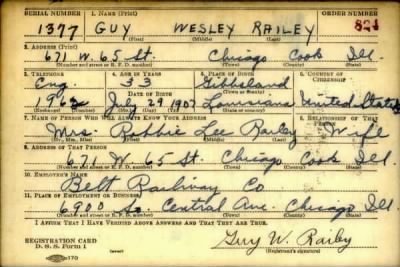 SERIAL NUMBER 1. NAME (Print) ORDER NUMBER
1377 GUY WESLEY RAILEY 824
(First) (Middle) (Last)
2. ADDRESS (Print)
671 W. 65 St. Chicago Cook Ill.
(Number and street or R. F. D. number) (Town) (County) (State)
3. TELEPHONE 4. AGE IN YEARS 5. PLACE OF BIRTH 6. COUNTRY OF CITIZENSHIP
Eng. 33 Gibbsland
DATE OF BIRTH (Town or county)
1962 July 29 1907 Louisiana United States
(Exchange) (Number) (Mo.) (Day) (Yr.) (State or country)
7. NAME OF PERSON WHO WILL ALWAYS KNOW YOUR ADDRESS 8. RELATIONSHIP OF THAT PERSON
Mrs. Robbie Lee Railey Wife
(Mr., Mrs., Miss) (First) (Middle) (Last)
9. ADDRESS OF THAT PERSON
671 W. 65 St. Chicago Cook Ill.
(Number and street or R. F. D. number) (Town) (County) (State)
10. EMPLOYER'S NAME
Belt Railway Co
11. PLACE OF EMPLOYMENT OR BUSINESS
6900 So. Central Ave. Chicago Ill.
(Number and street or R. F. D. number) (Town) (County) (State)
I AFFIRM THAT I HAVE VERIFIED ABOVE ANSWERS AND THAT THEY ARE TRUE.
REGISTRATION CARD
D. S. S. Form 1 Guy W. Railey
(Registrant's signature)